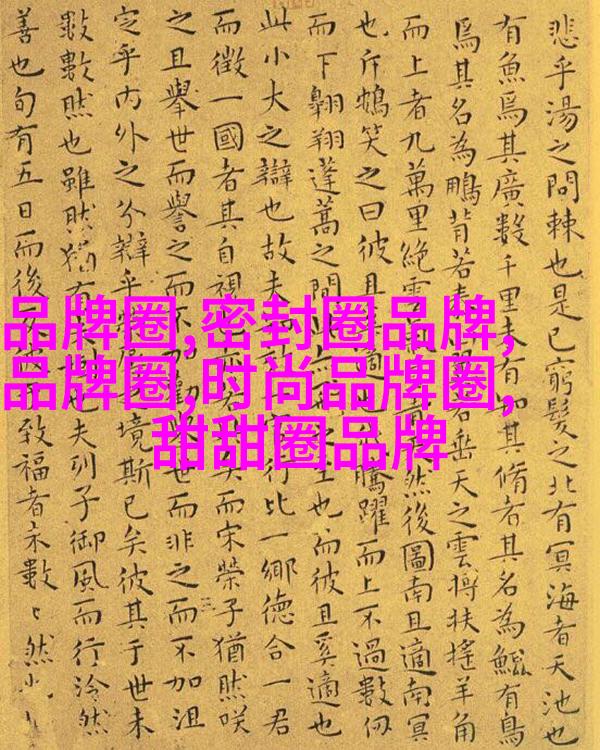 品牌圈,密封圈品牌,
品牌圈,时尚品牌圈,
甜甜圈品牌
悲乎湯之問棘也是已窮髮之北有冥海者天池也
有魚焉其廣數千里未有知其脩者其名為鯤有鳥
焉其名為鵬背若若垂天之雲摶扶搖羊角
而上者九萬里絕雲天然後圖南且適南冥
也斥鴳笑之曰彼且適也騰躍而上不過數仞
而下翱翔蓬蒿之間之至也而彼且奚適也
此小大之辯也故夫行比一鄉德合一君
而徵一國者其自視亦若矣而宋榮子猶然咲
之且舉世而譽之而不加勸舉世而非之而不加沮
定乎內外之分辯乎境斯已矣彼其于世未
數數然也雖然猶有也夫列子御風而行泠然
善也旬有五日而後致福者未數〻然也